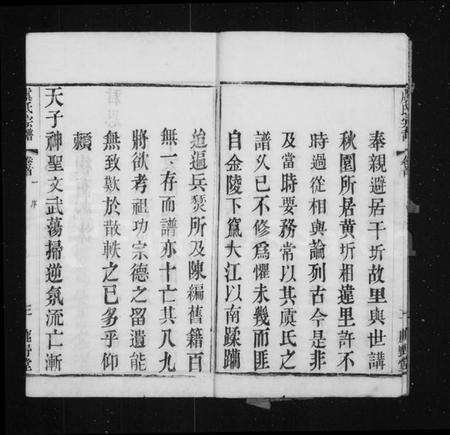 奉親避居干圻故里與世講
秋園所居黄圻相違里許不
時過從相與論列古今是非
及當時要務常以其虞氏之
譜久已不修爲懼未幾而匪
自金陵下竄大江以南蹂躏
迨遍兵燹所及陳編舊籍百
無一存而譜亦十亡其八九
將欲考祖功宗德之留遺能
無致歎於散軼之已多乎仰
賴
天子神聖文武蕩掃逆氛流亡漸
虞氏宗譜 卷首 一 序 三